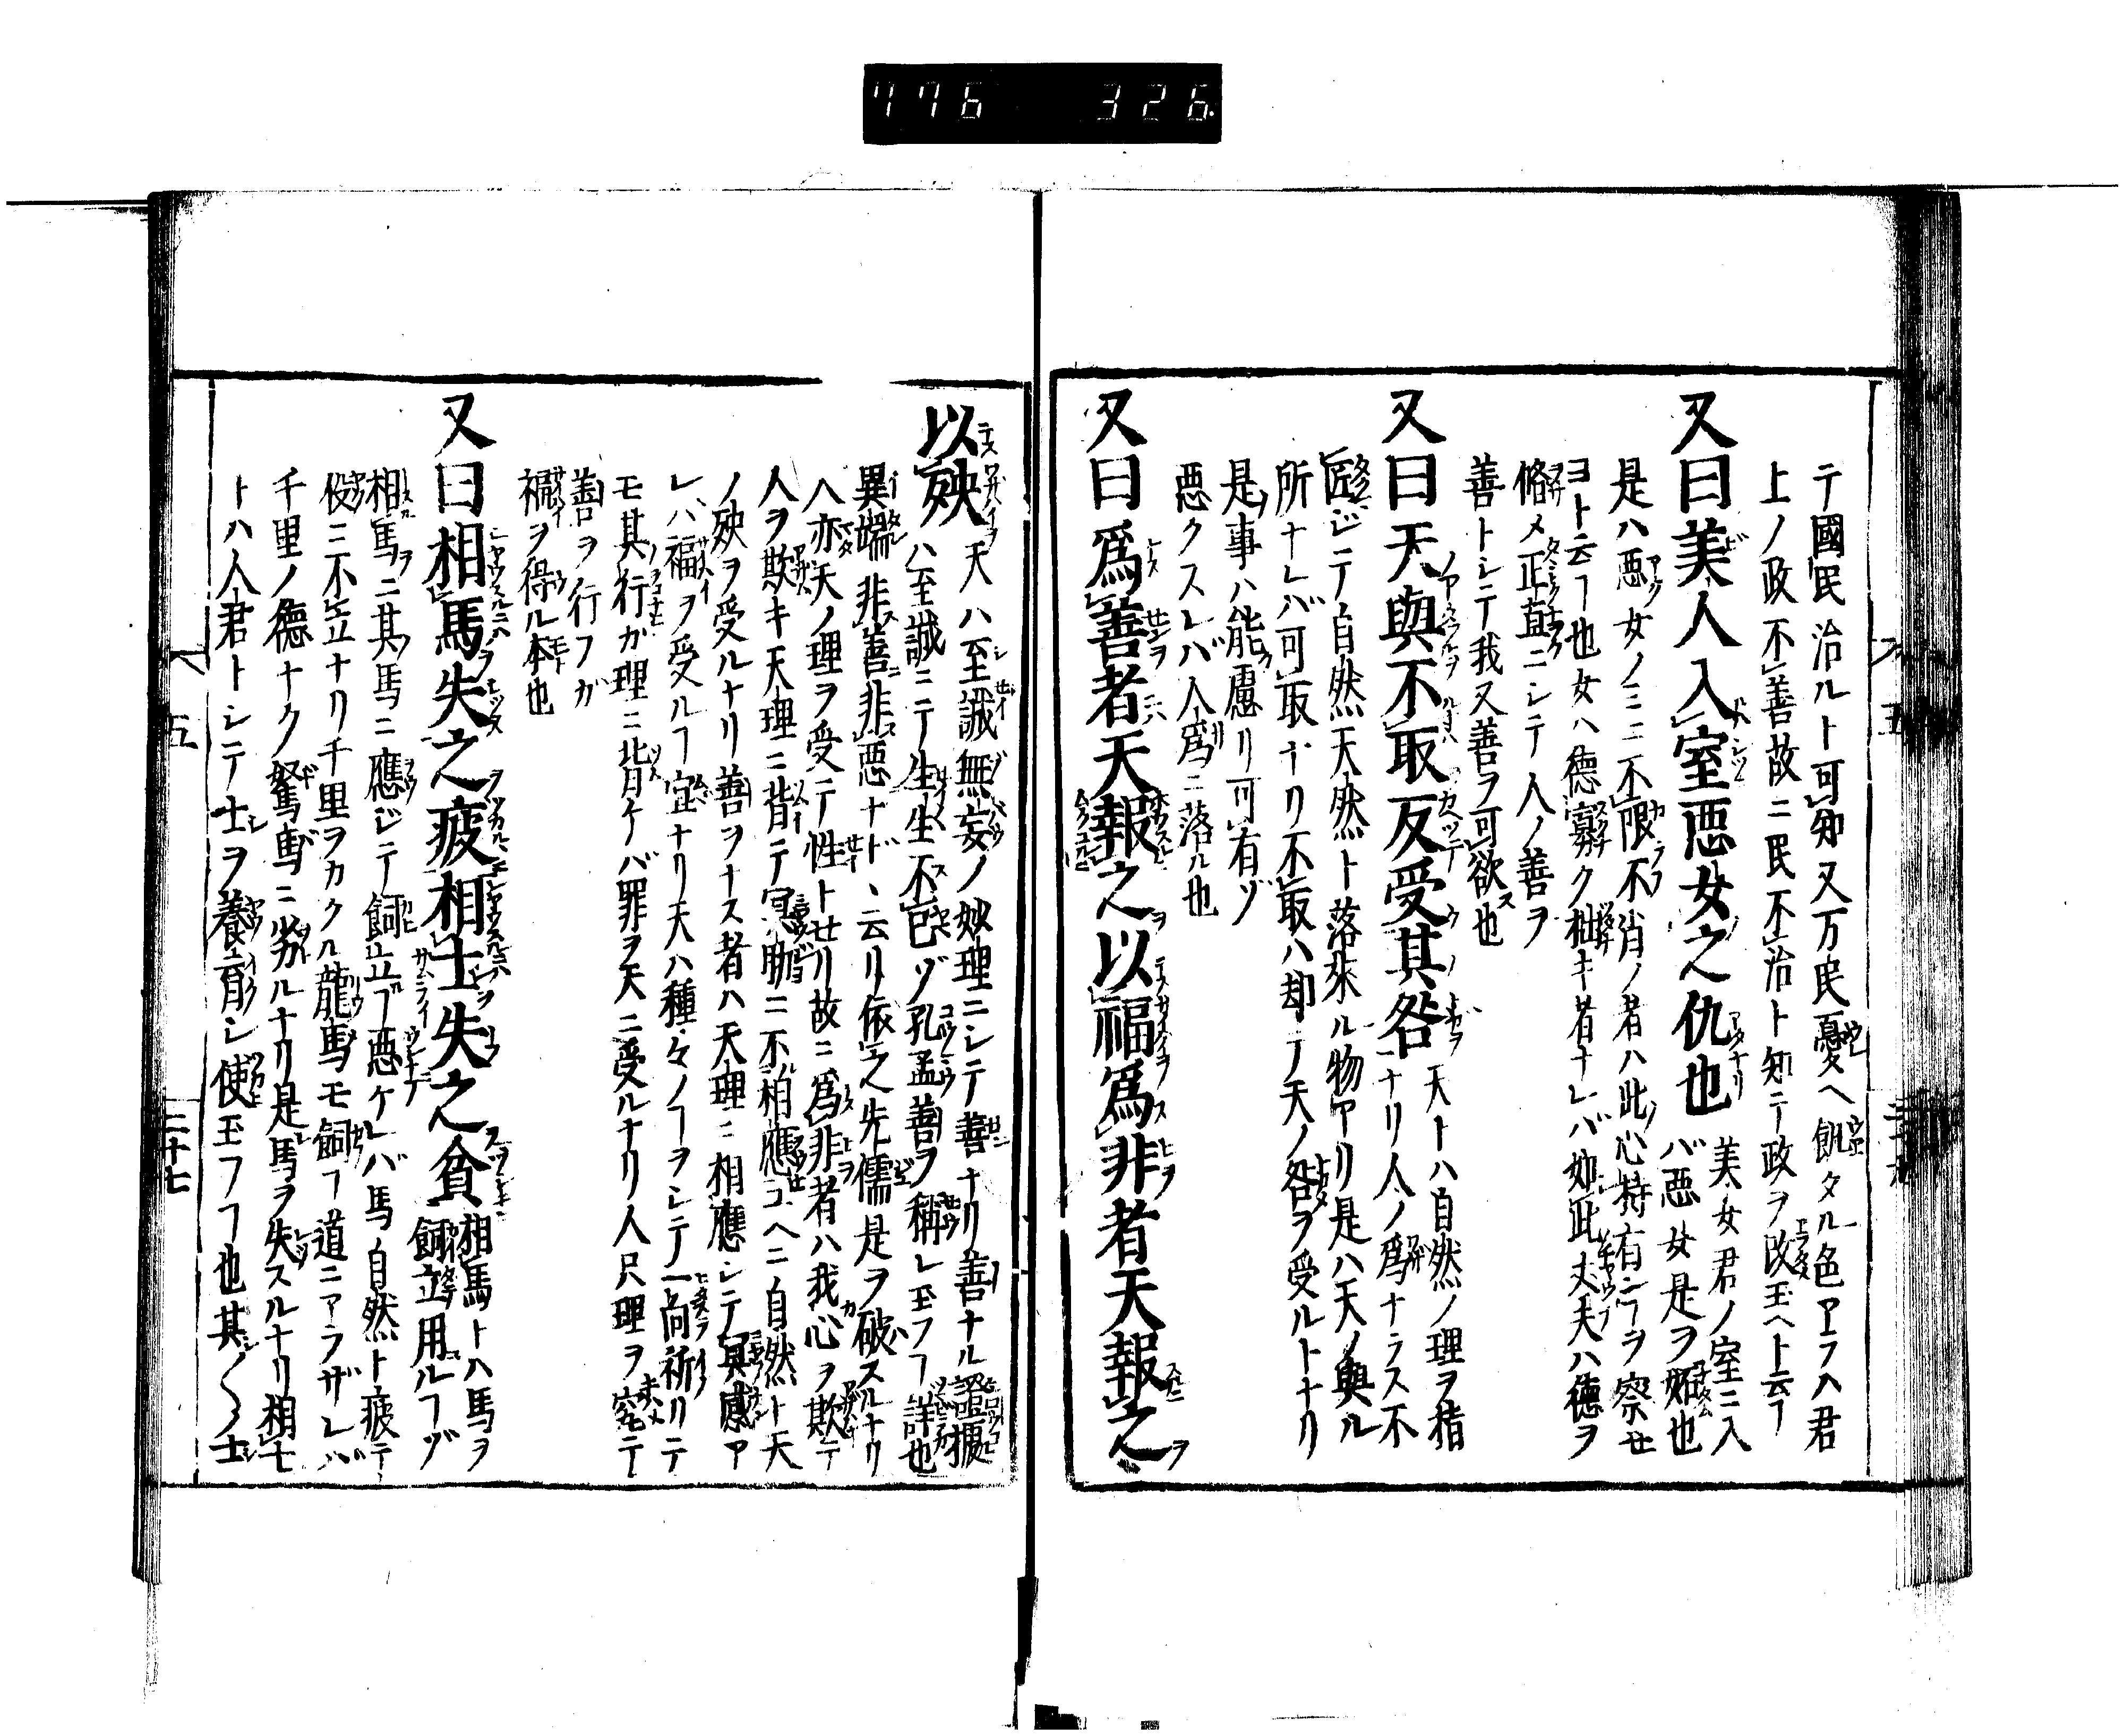 776 326
テ國民治ルト可知又万民憂ヘ飢タル色アラハ君
上ノ政不善故ニ民不治ト知テ政ヲ改玉ヘト云フ
又曰美人入室惡女之仇也 美女君ノ室ニ入
バ惡女是ヲ妬也
是ハ惡女ノミニ不限不肖ノ者ハ此心持有ンヿヲ察セ
ヨト云ヿ也女ハ德寡ク拙キ者ナレバ如此丈夫ハ德ヲ
脩メ正直ニシテ人ノ善ヲ
善トシテ我又善ヲ可欲也
又曰天與不取反受其咎 天トハ自然ノ理ヲ指
ナリ人ノ爲ナラス不
シテ自然天然ト落來ル物アリ是ハ天ノ與ル
所ナレバ可取ナリ不取ハ却テ天ノ咎ヲ受ルトナリ
是事ハ能慮リ可有ゾ
惡クスレバ人爲ニ落ル也
又曰爲善者天報之以福爲非者天報之
以殃 天ハ至誠無妄ノ妙理ニシテ善ナリ善ナル證據
ハ至誠ニテ生生不已ゾ孔孟善ヲ稱シ玉フヿ詳也
異端非善非惡ナド、云リ依之先儒是ヲ破スルナリ
人亦天ノ理ヲ受テ性トせリ故ニ爲非者ハ我心ヲ欺テ
人ヲ欺キ天理ニ背テ冥中ニ不相應ユヘニ自然ト天
ノ殃ヲ受ルナリ善ヲナス者ハ天理ニ相應シテ冥感ア
レハ福ヲ受ルヿ宜ナリ天ハ種々ノヿヲシテ一向祈リテ
モ其行ガ理ニ背ケバ罪ヲ天ニ受ルナリ人只理ヲ窮テ
善ヲ行フガ
福ヲ得ル本也
又曰相馬失之疲相士失之貧 相馬トハ馬ヲ
飼立用ルヿゾ
相馬ニ其馬ニ應ジテ飼立ヿ惡ケレバ馬自然ト疲テ
役ニ不立ナリ千里ヲカクル龍馬モ飼フ道ニアラザレバ
千里ノ德ナク駑馬ニ劣ルナリ是馬ヲ失スルナリ相士
トハ人君トシテ士ヲ養育シ使玉フヿ也其ノ〱士
五
二十七